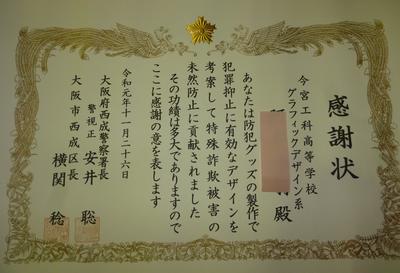 感謝状
今宮工科高等学校
グラフィックデザイン系
殿
あなたは防犯グッズの製作で
犯罪抑止に有効なデザインを
考案して特殊詐欺被害の
未然防止に貢献されました
その功績は多大でありますので
ここに感謝の意を表します
令和元年十一月二十六日
大阪府西成警察署長
警視正 安井 聡
大阪市西成区長
横関 稔